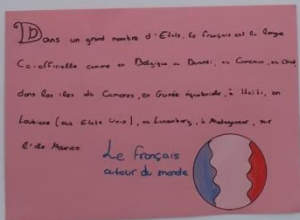 Dans un grand nombre d'Etats, le français est la langue
Co-officielle comme en Belgique au Burundi, au Cameroun, au
dans les iles du Comores, en Guinée équatoriale, à Haïti, en
Louisiane (aux Etats Unis), au Luxembourg, à Madagascar, sur
l'ile Maurice
Le français
autour du monde